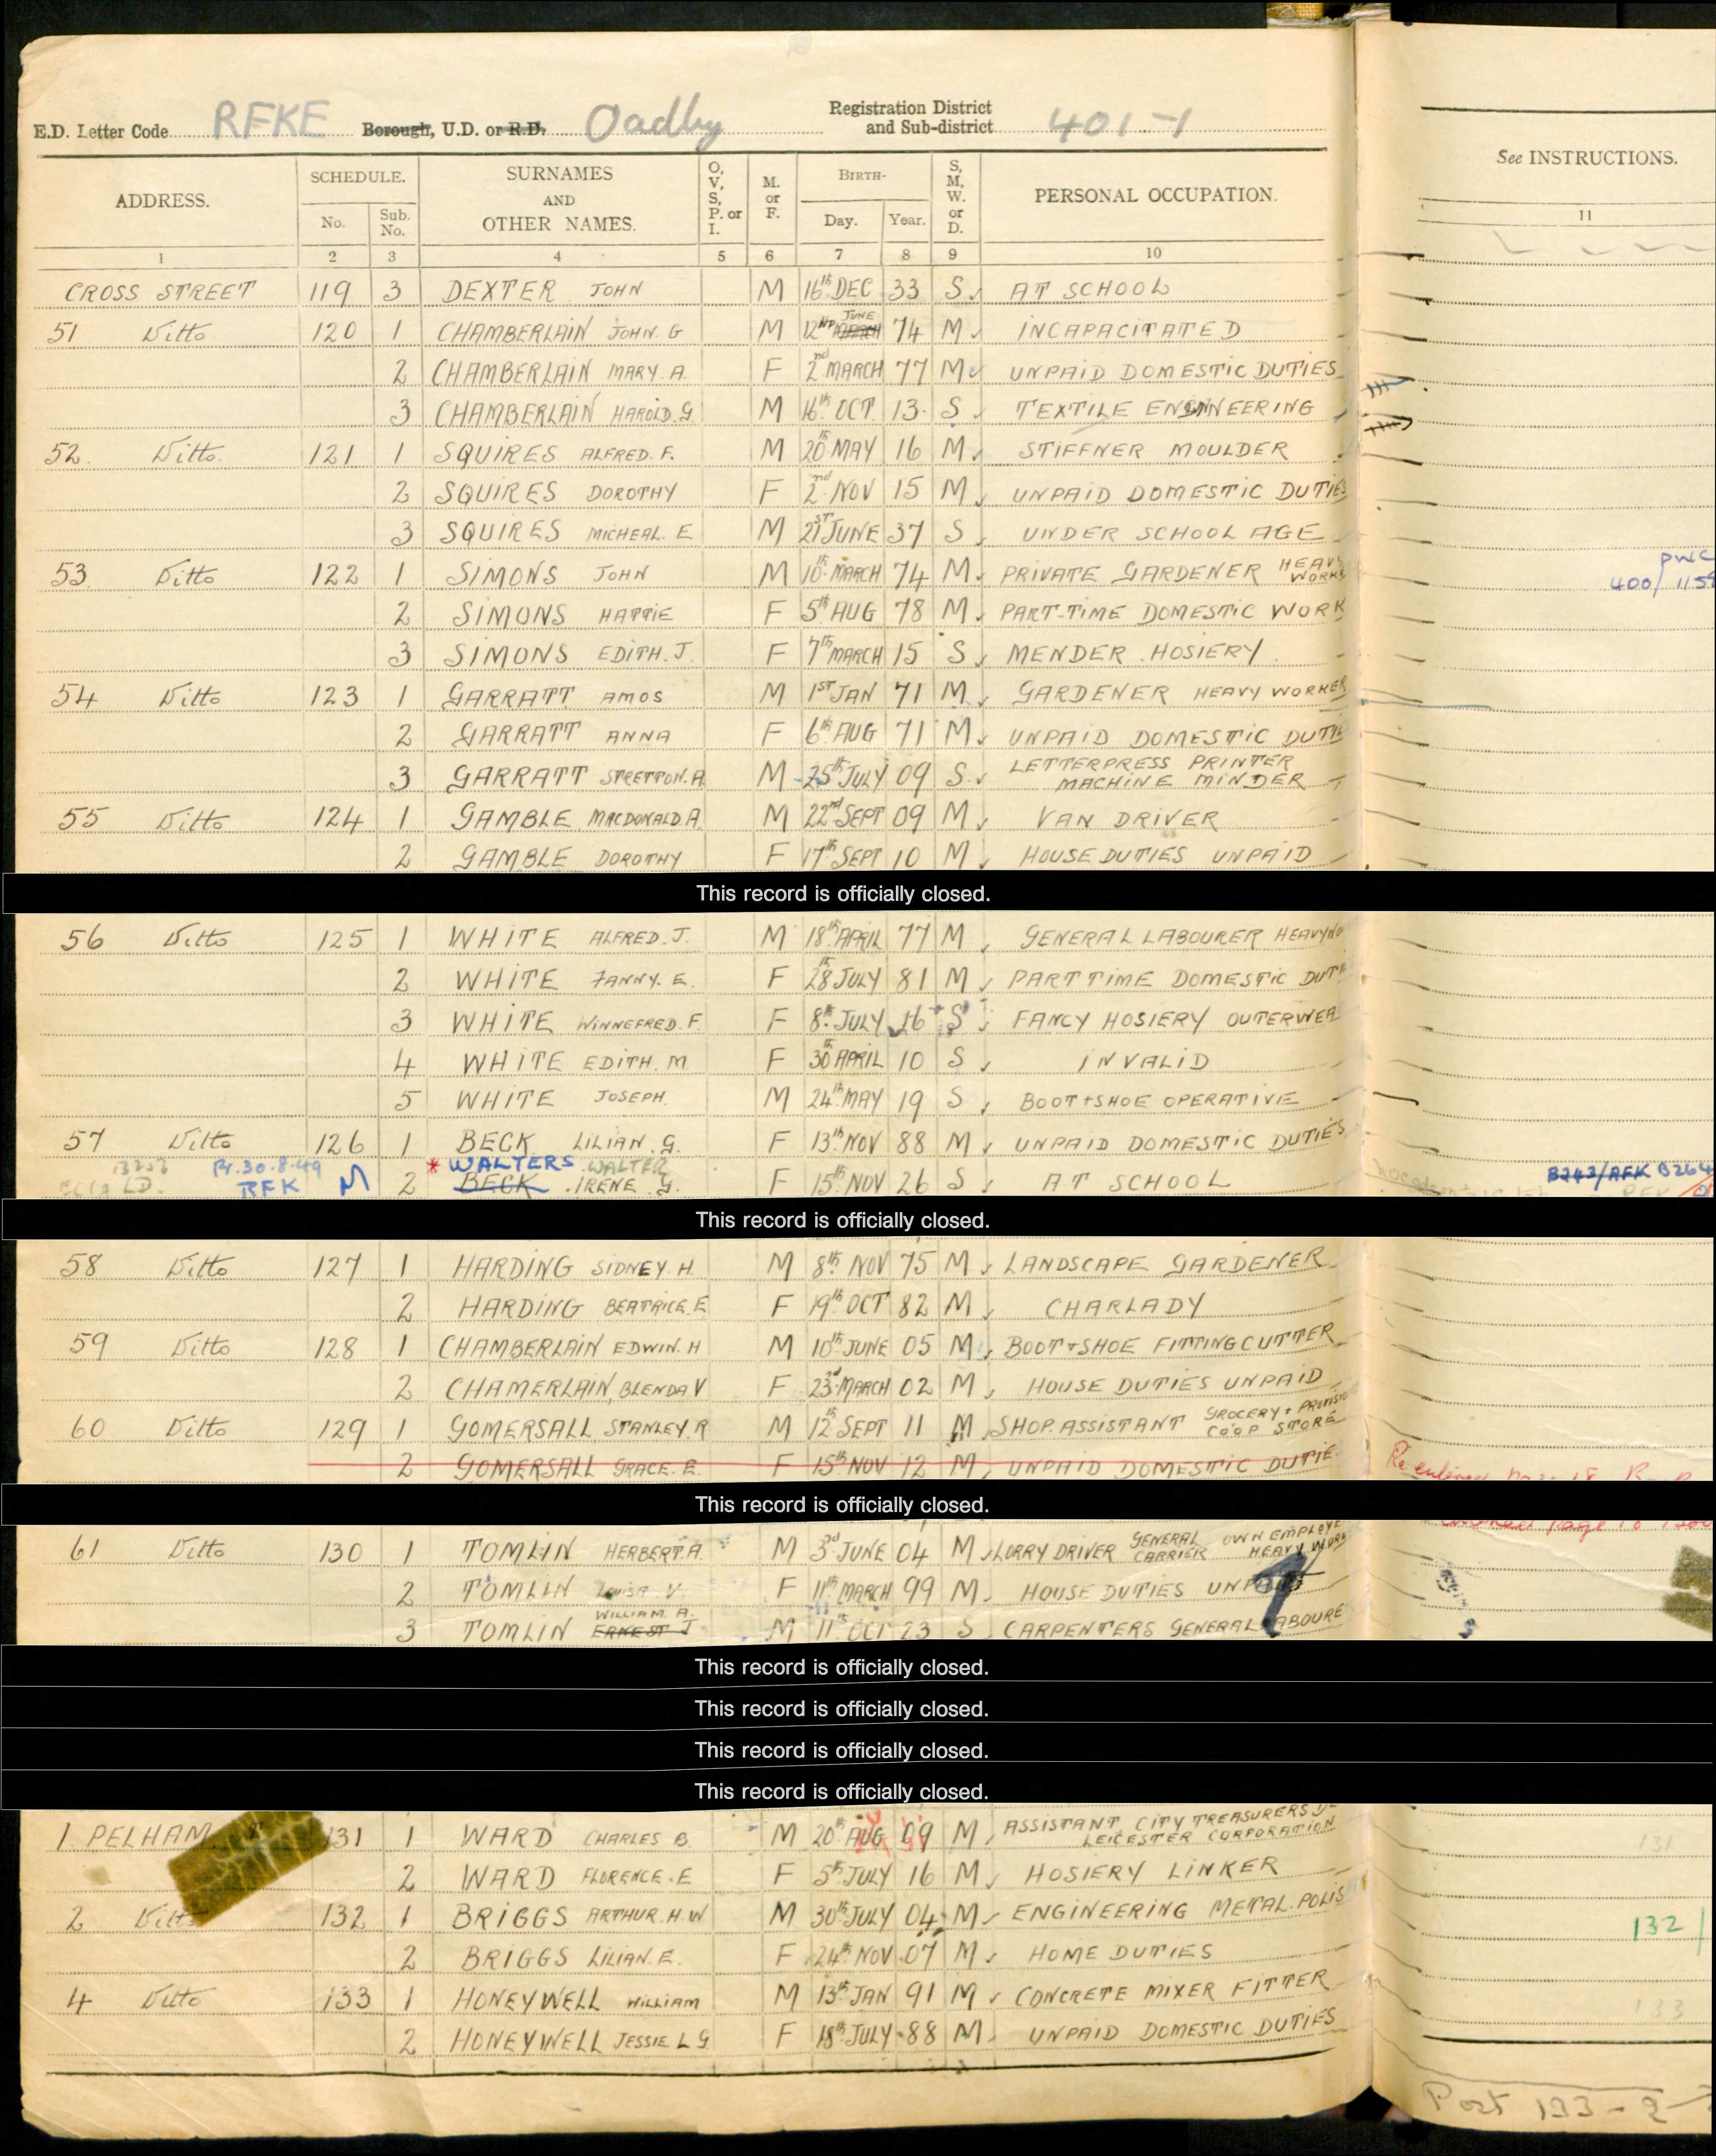 E.D. Letter Code RFKE Borough, U.D. or R.D. Oadby Registration District and Sub-district 401-1
ADDRESS. SCHEDULE. No. Sub. No. SURNAMES AND OTHER NAMES. O, V, S, P. or I. M. or F. BIRTH- Day. Year. S, M, W. or D. PERSONAL OCCUPATION. See INSTRUCTIONS.
1 2 3 4 5 6 7 8 9 10 11
CROSS STREET 119 3 DEXTER JOHN M 16th DEC 33 S AT SCHOOL
51 Ditto 120 1 CHAMBERLAIN JOHN. G M 12ND MARCH JUNE 74 M INCAPACITATED
2 CHAMBERLAIN MARY. A. F 2nd MARCH 77 M UNPAID DOMESTIC DUTIES
3 CHAMBERLAIN HAROLD. G. M 16th OCT. 13 S TEXTILE ENGINEERING
52. Ditto. 121 1 SQUIRES ALFRED. F. M 20th MAY 16 M STIFFNER MOULDER
2 SQUIRES DOROTHY F 2nd NOV 15 M UNPAID DOMESTIC DUTIES
3 SQUIRES MICHEAL. E M 21ST JUNE 37 S UNDER SCHOOL AGE
53 Ditto 122 1 SIMONS JOHN M 10th MARCH 74 M PRIVATE GARDENER HEAVY WORKE PWC 400/ 115
2 SIMONS HATTIE F 5th AUG 78 M PART-TIME DOMESTIC WORK
3 SIMONS EDITH. J. F 7th MARCH 15 S MENDER HOSIERY
54 Ditto 123 1 GARRATT AMOS M 1ST JAN 71 M GARDENER HEAVY WORKER
2 GARRATT ANNA F 6th AUG 71 M UNPAID DOMESTIC DUTIE
3 GARRATT STRETTON. A M 25th JULY 09 S LETTERPRESS PRINTER MACHINE MINDER
55 Ditto 124 1 GAMBLE MACDONALD A. M 22nd SEPT 09 M VAN DRIVER
2 GAMBLE DOROTHY F 17th SEPT 10 M HOUSE DUTIES UNPAID
This record is officially closed.
56 Ditto 125 1 WHITE ALFRED. J. M 18th APRIL 77 M GENERAL LABOURER HEAVY
2 WHITE FANNY. E. F 28th JULY 81 M PART TIME DOMESTIC DUT
3 WHITE WINNEFRED. F. F 8th JULY 16 S FANCY HOSIERY OUTERWEA
4 WHITE EDITH. M. F 30th APRIL 10 S INVALID
5 WHITE JOSEPH. M 24th MAY 19 S BOOT + SHOE OPERATIVE
57 Ditto 126 1 BECK LILIAN. G. F 13th NOV 88 M UNPAID DOMESTIC DUTIES
Pr. 30.8.49 * WALTERS WALTER
LD. RFK M 2 BECK IRENE G. F 15th NOV 26 S AT SCHOOL B243/RFK B264
This record is officially closed.
58 Ditto 127 1 HARDING SIDNEY. H. M 8th NOV 75 M LANDSCAPE GARDENER
2 HARDING BEATRICE. E F 19th OCT 82 M CHARLADY
59 Ditto 128 1 CHAMBERLAIN EDWIN. H M 10th JUNE 05 M BOOT + SHOE FITTING CUTTER
2 CHAMERLAIN, BLENDA V F 23d MARCH 02 M HOUSE DUTIES UNPAID
60 Ditto 129 1 GOMERSALL STANLEY. R M 12th SEPT 11 M SHOP. ASSISTANT GROCERY + PROVISIO CO.OP STORE
2 GOMERSALL GRACE. E. F 15th NOV 12 M UNPAID DOMESTIC DUTIE Re entered
This record is officially closed.
61 Ditto 130 1 TOMLIN HERBERT. A. M 3d JUNE 04 M LORRY DRIVER GENERAL CARRIER OWN EMPLOYE HEAVY WORK
2 TOMLIN LOUISA V F 11th MARCH 99 M HOUSE DUTIES UNPAID
3 TOMLIN WILLIAM. A. ERNEST J M 11th OCT 23 S CARPENTERS GENERAL LABOURE
This record is officially closed.
This record is officially closed.
This record is officially closed.
This record is officially closed.
1 PELHAM 131 1 WARD CHARLES B. M 20th AUG 09 M ASSISTANT CITY TREASURERS LEICESTER CORPORATION 131
2 WARD FLORENCE. E F 5th JULY 16 M HOSIERY LINKER
2 Ditto 132 1 BRIGGS ARTHUR. H. W M 30th JULY 04 M ENGINEERING METAL. POLIS 132
2 BRIGGS LILIAN. E. F 24th NOV 07 M HOME DUTIES
4 Ditto 133 1 HONEYWELL WILLIAM M 13th JAN 91 M CONCRETE MIXER FITTER 133
2 HONEYWELL JESSIE L G F 18th JULY 88 M UNPAID DOMESTIC DUTIES
Post 133 - 2